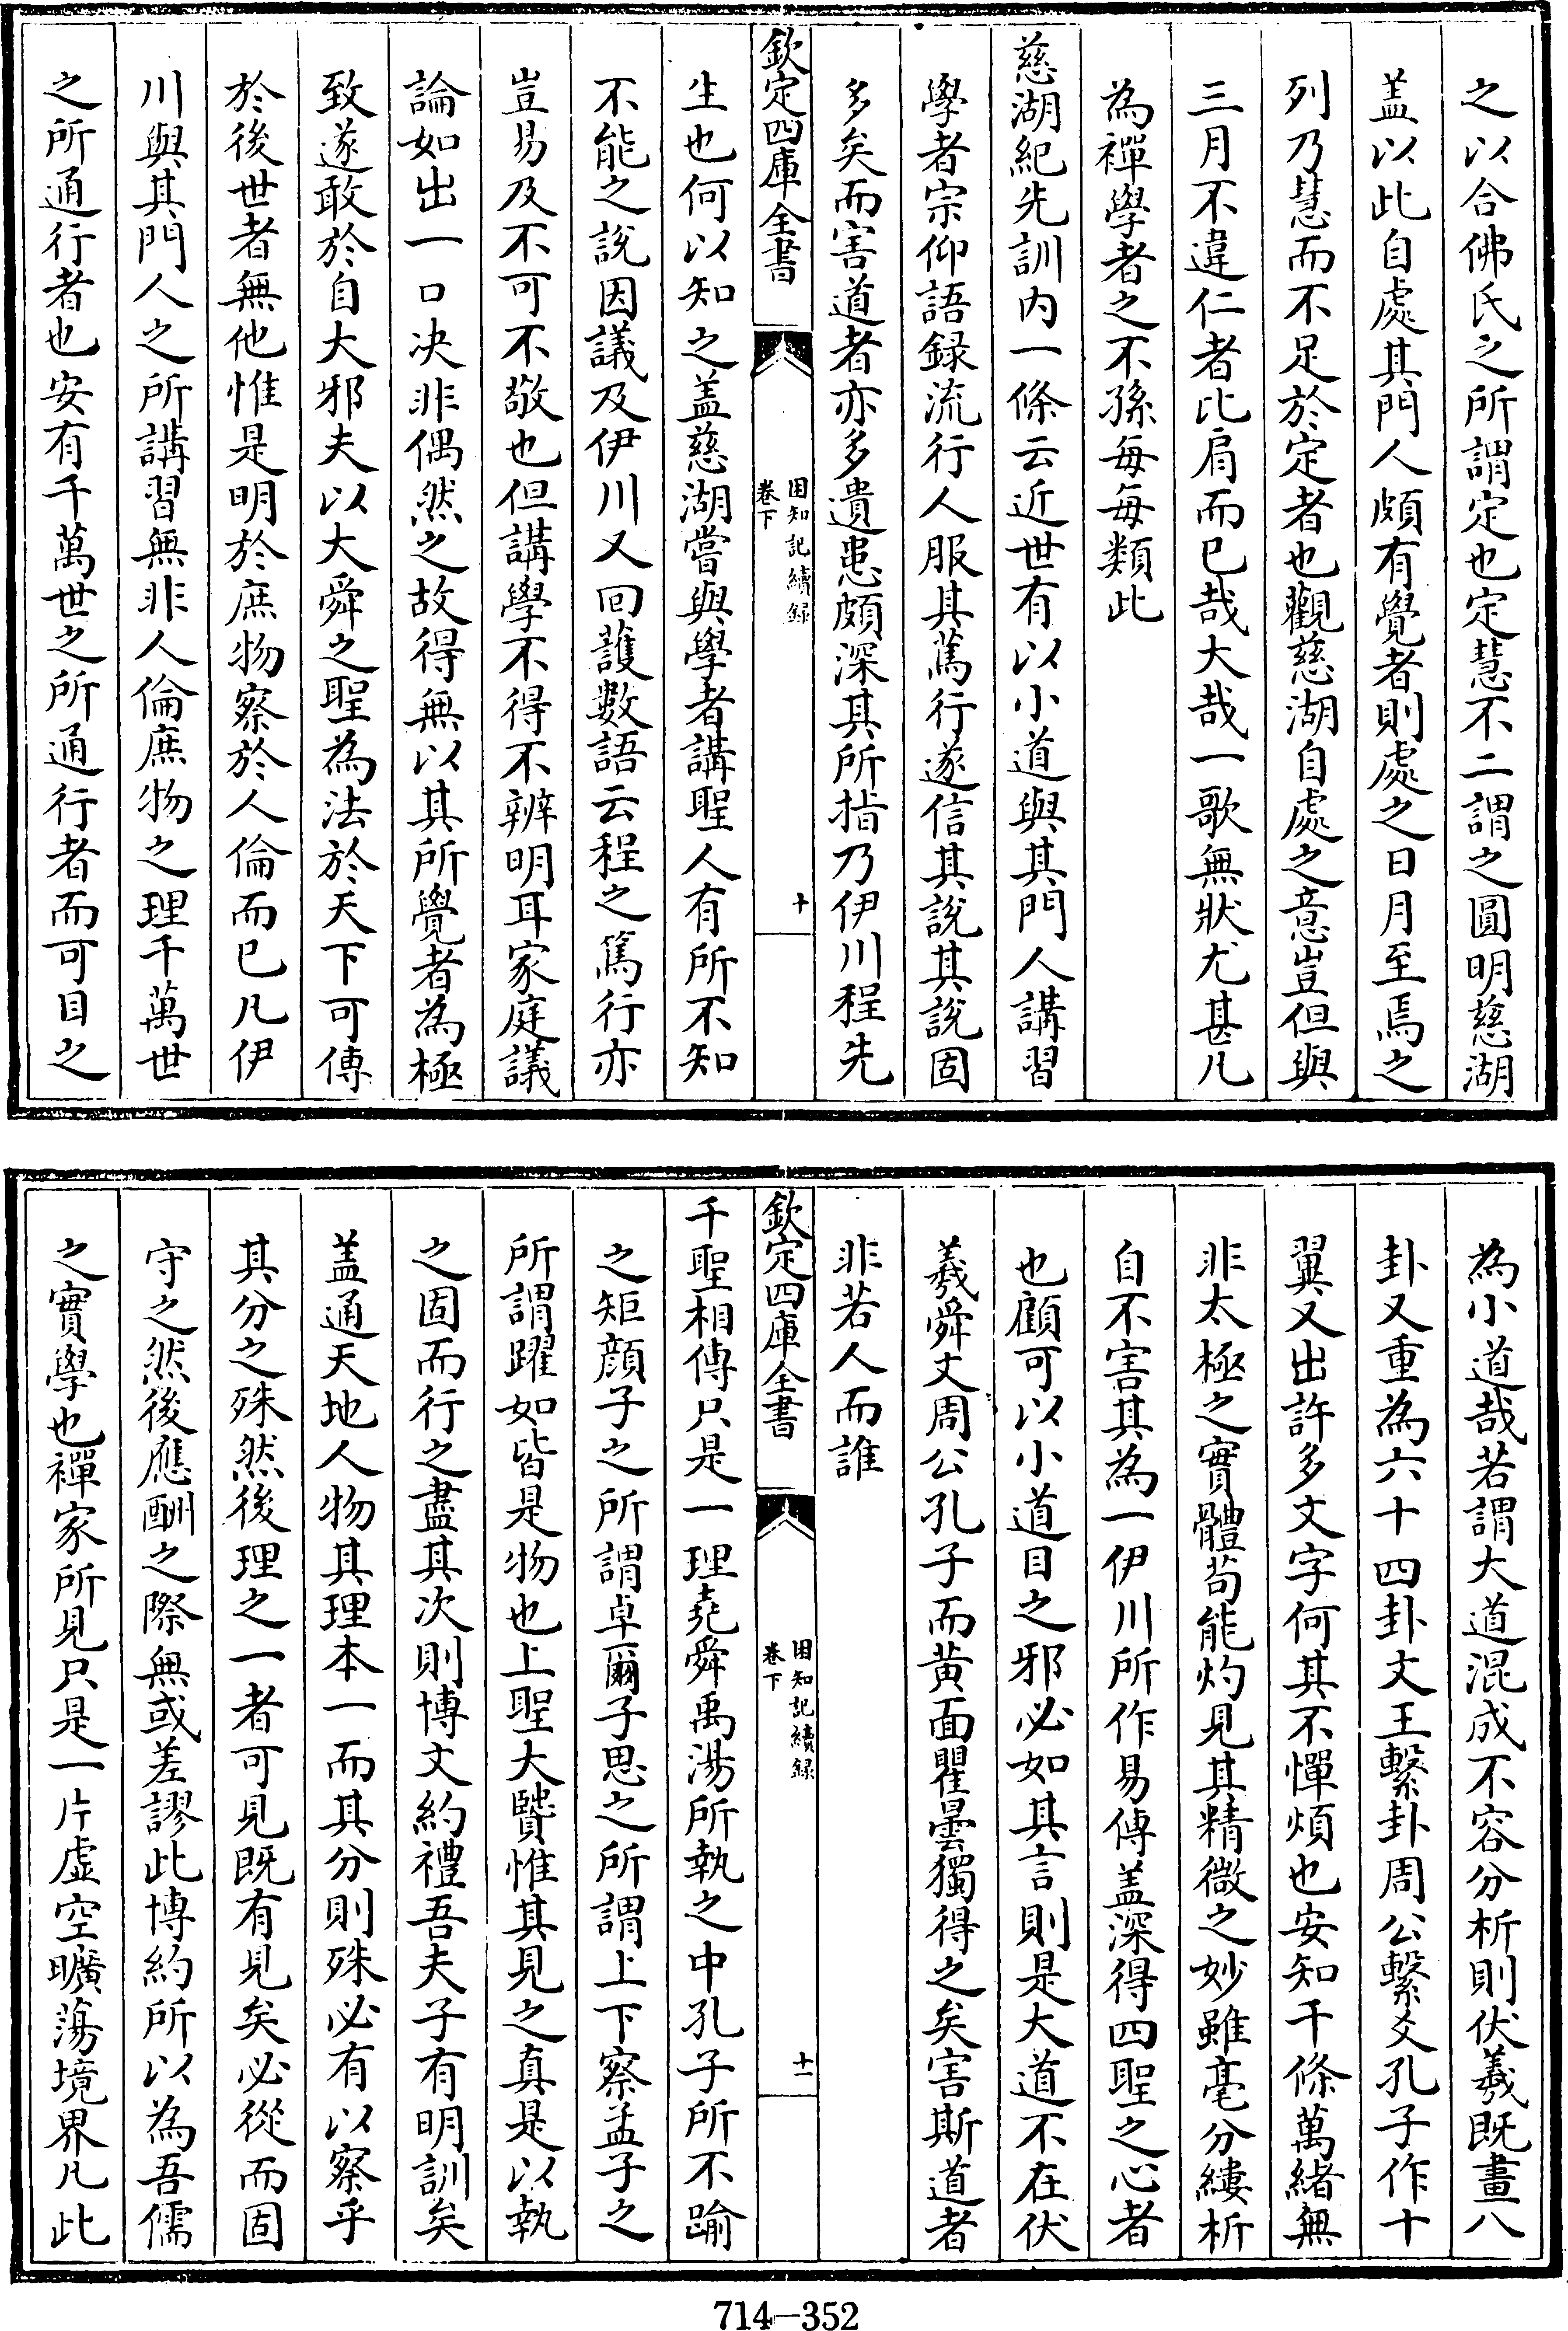 之以合佛氏之所謂定也定慧不二謂之圓明慈湖
盖以此自處其門人頗有覺者則處之日月至焉之
列乃慧而不足於定者也觀慈湖自處之意豈但與
三月不違仁者比肩而已哉大哉一歌無狀尤甚凡
為禪學者之不孫每每類此
慈湖紀先訓内一條云近世有以小道與其門人講習
學者宗仰語録流行人服其篤行遂信其說其說固
多矣而害道者亦多遺患頗深其所指乃伊川程先
欽定四庫全書
困知記續録
卷下
十
生也何以知之盖慈湖嘗與學者講聖人有所不知
不能之說因議及伊川又回護數語云程之篤行亦
豈易及不可不敬也但講學不得不辨明耳家庭議
論如出一口决非偶然之故得無以其所覺者為極
致遂敢於自大邪夫以大舜之聖為法於天下可傳
於後世者無他惟是明於庶物察於人倫而已凡伊
川與其門人之所講習無非人倫庶物之理千萬世
之所通行者也安有千萬世之所通行者而可目之
為小道哉若謂大道混成不容分析則伏羲既畫八
卦又重為六十四卦文王繫卦周公繫爻孔子作十
翼又出許多文字何其不憚煩也安知千條萬緒無
非太極之實體苟能灼見其精微之妙雖毫分縷析
自不害其為一伊川所作易傳盖深得四聖之心者
也顧可以小道目之邪必如其言則是大道不在伏
羲舜文周公孔子而黄面瞿曇獨得之矣害斯道者
非若人而誰
欽定四庫全書
困知記續録
卷下
十一
千聖相傳只是一理堯舜禹湯所執之中孔子所不踰
之矩顔子之所謂卓爾子思之所謂上下察孟子之
所謂躍如皆是物也上聖大賢惟其見之真是以執
之固而行之盡其次則博文約禮吾夫子有明訓矣
盖通天地人物其理本一而其分則殊必有以察乎
其分之殊然後理之一者可見既有見矣必從而固
守之然後應酬之際無或差謬此博約所以為吾儒
之實學也禪家所見只是一片虛空曠蕩境界凡此
714—352